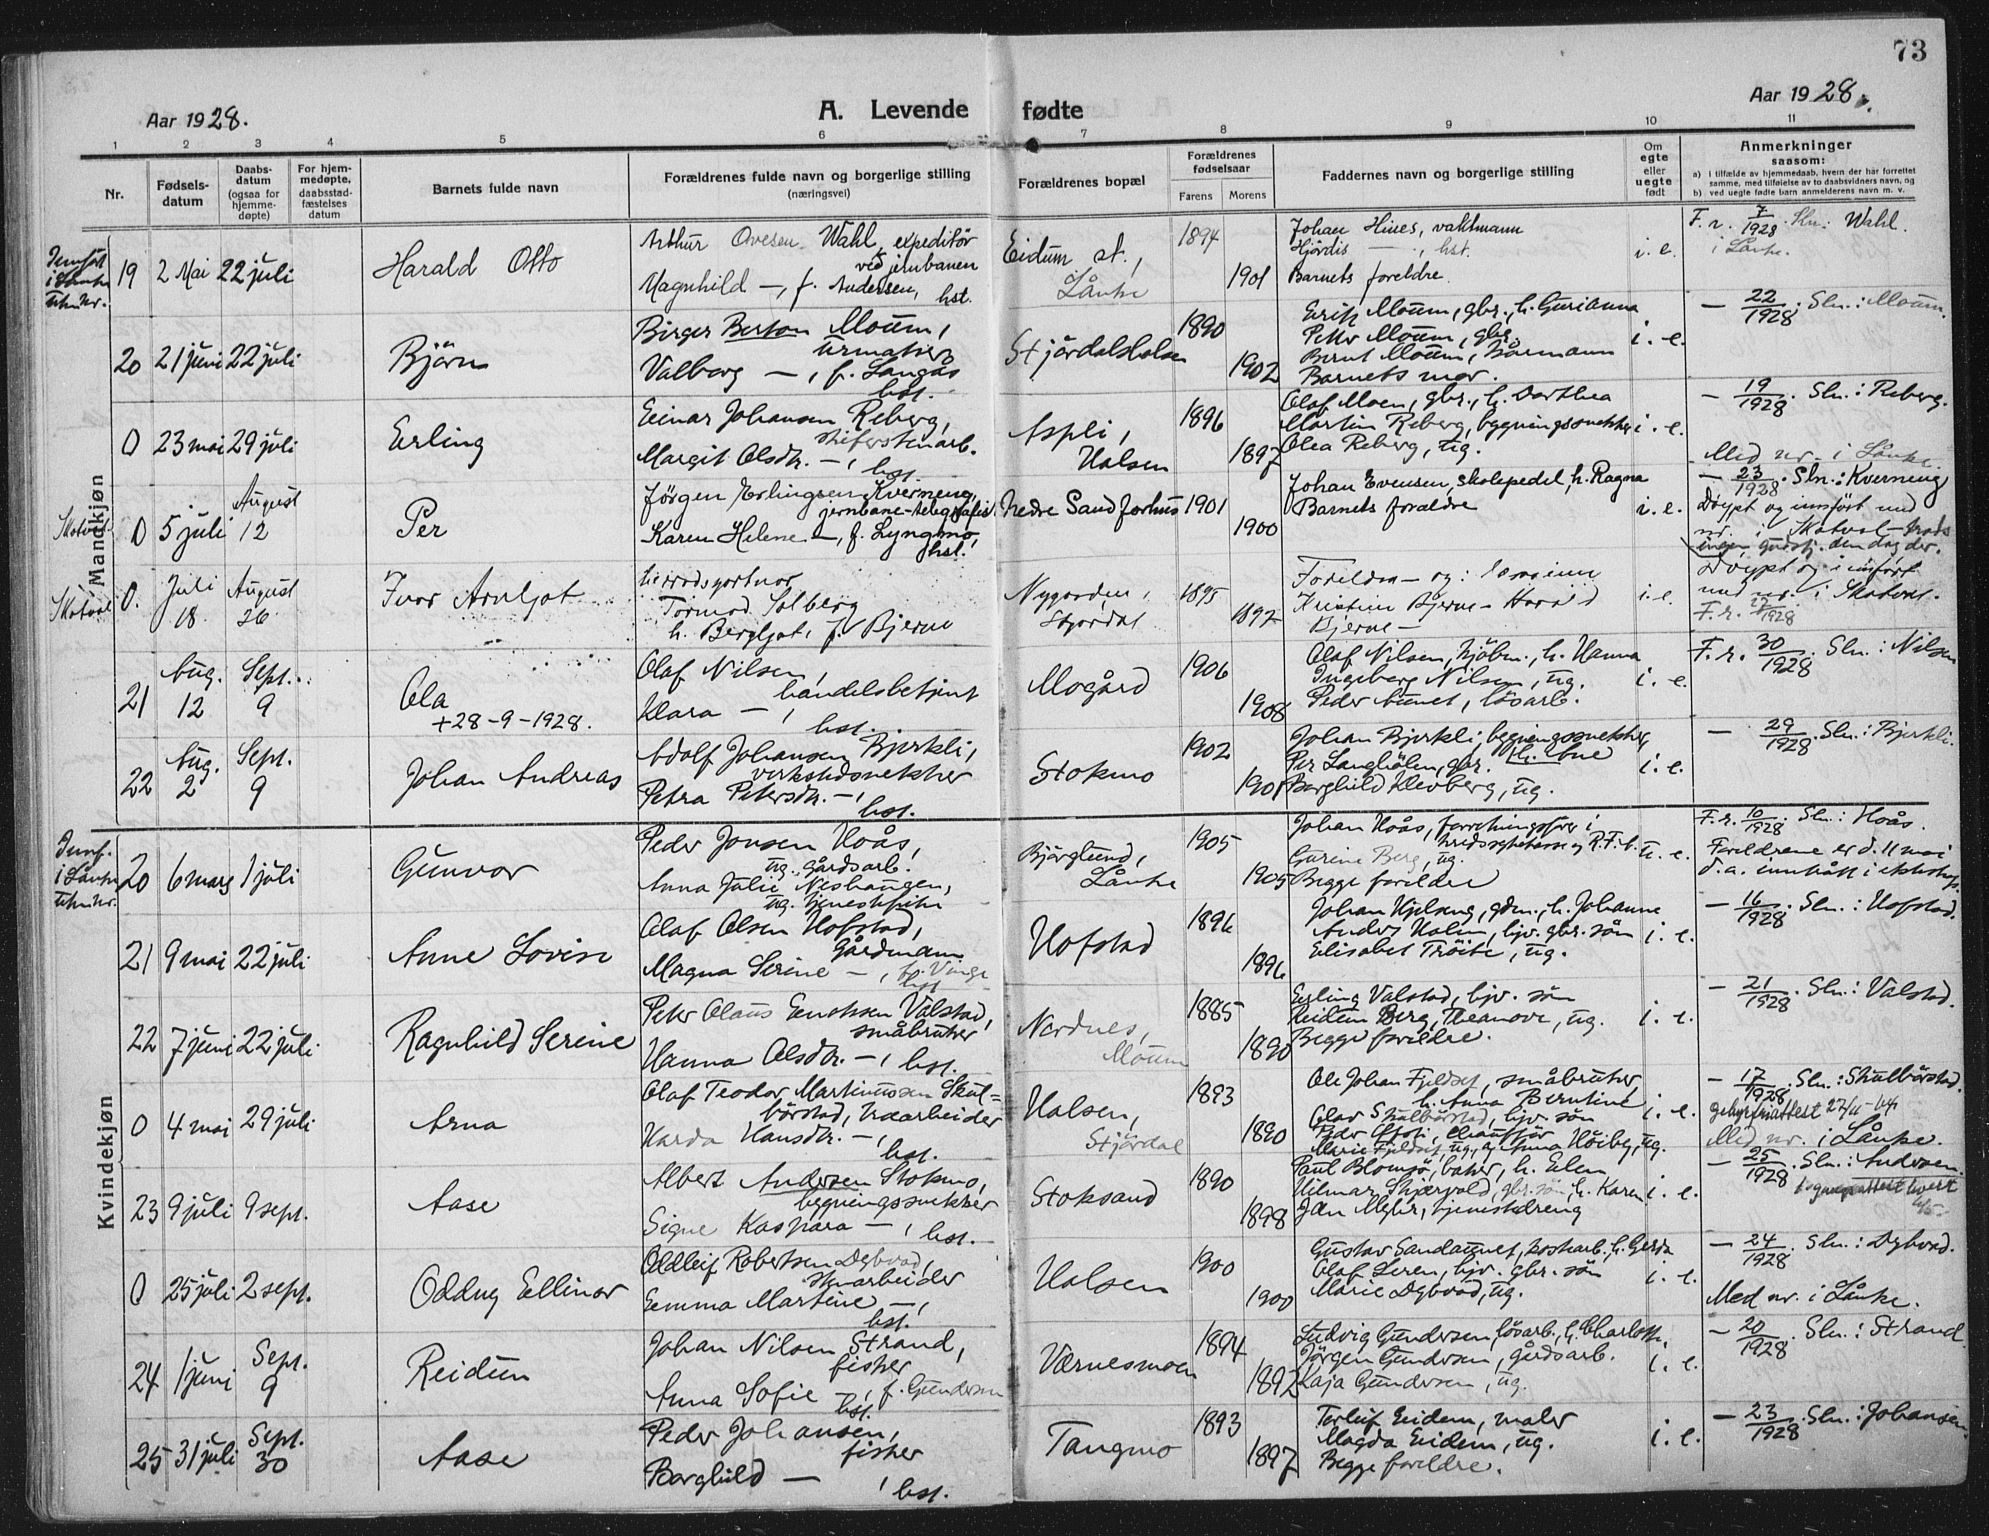 73
Aar 1928.
A. Levende fødte
Aar 1928.
1 2 3 4 5 6 7 8 9 10 11
Nr.
Fødsels-
datum
Daabs-
datum
(ogsaa for
hjemme-
døpte)
For hjem-
medøpte,
daabsstad-
fæstelses
datum
Barnets fulde navn
Forældrenes fulde navn og borgerlige stilling
(næringsvei)
Forældrenes bopæl
Forældrenes
fødselsaar
Farens Morens
Faddernes navn og borgerlige stilling
Om
egte
eller
uegte
født
Anmerkninger
saasom:
a) I tilfælde av hjemmedaab, hvem der har forrettet
samme, med tilføielse av to daabsvidners navn, og
b) ved uegte fødte barn anmelderens navn m. v.
Mandkjøn
19 2 Mai 22 juli
Harald Otto
Arthur Ovesen Wahl, expeditör
ved jernbanen
Magnhild —, f. Andersen, hst.
Eidum st.,
Lånke
1894
1901
Johan Hines, vaktmann
Hjördis — „ —, hst.
Barnets foreldre.
i. e.
F. r. 7/1928. Sln: Wahl.
i Lånke.
20 21 juni 22 juli
Björn
Birger Berton Moum,
urmaker
Valborg —, f. Langås
hst.
Stjördalshalsen
1890
1902
Erik Moum, gbr., h. Gurianna
Petter Moum, gbr.
Bernt Moum,
Barnets mor.
i. e.
— 22/1928. Sln.: Moum.
0 23 mai 29 juli
Erling
Einar Johansen Reberg,
skiferstenarb.
Margit Olsdtr. —, hst.
Aspli,
Halsen
1896
1897
Olaf Moen, gbr., h. Dorthea
Martin Reberg, bygningssnekker
Olea Reberg, ug.
i. e.
— 19/1928. Sln.: Reberg.
Med nr. i Lånke.
Skatval
0 5 juli August 12
Per
Jørgen Erlingsen Kverneng,
jernbane-telegrafist.
Karen Helene —, f. Lyngmo,
hst.
Nedre Sandforhus
1901
1900
Johan Evensen, skolepedel, h. Ragna
Barnets foreldre
i. e.
— 23/1928. Sln.: Kverneng
Døypt og innført med
nr. i Skatval —
den dag der.
Skatval
0. Juli 18. August 26
Ivar Arnljot
Tormod Solberg
h. Bergljot, f. Bjerve
Nygarden,
Stjordal
1895
1897
Foreldra — og:
Kristine Bjerve — Harald
Bjerve —
i. e.
Døypt og innført
med nr. i Skatval.
F. r. 1928
21 Aug. 12 Sept. 9
Ola
+28-9-1928.
Olaf Nilsen,
handelsbetjent
Klara —,
hst.
Mogård
1906
1908
Olaf Nilsen, kjöbm., h. Hanna
Ingeborg Nilsen, ug.
Peder Aunet, lösarb.
i. e.
F. r. 30/1928. Sln.: Nilsen
22 Aug. 2 Sept. 9
Johan Andreas
Adolf Johansen Bjerkli,
verkstedsnekker
Petra Petersdtr. —,
hst.
Stokmo
1902
1901
Johan Bjerkli, bygningssnekker,
Per Langhölen, gbr.
Borghild Klevberg, ug.
i. e.
— 29/1928. Sln.: Bjerkli.
Kvindekjøn
20 6 mars 1 juli
Gunvor
Peder Jonsen Hoås,
ug., gårdsarb.
Anna Julie Neshaugen,
ug. tjenestepike
Björglund,
Lånke
1905
1905
Johan Hoås,
Gurine Berg, ug.
Begge foreldre
u. e.
F. r. 10/1928. Sln: Hoås.
Foreldrene er d. 11 mai
d. a. inntrått i ekteskap.
21 9 mai 22 juli
Anne Lovise
Olaf Olsen Hofstad,
Gårdmann
Magna Serine —, f. Vinge
hst.
Hofstad
1896
1896
Johan Hjelseng, gdm., h. Johanne
Anders Halim, hjv. gbr. sön
Elisabet Tröite, ug.
i. e.
— 16/1928. Sln.: Hofstad.
22 7 juni 22 juli
Ragnhild Serine
Peter Olaus Enoksen Valstad,
småbruker
Hanna Olsdtr. —, hst.
Nordnes,
Moum
1885
1890
Erling Valstad, hjv. sön
Reidun Berg, Theanore, ug.
Begge foreldre.
i. e.
— 21/1928. Sln.: Valstad.
0 4 mai 29 juli
Arna
Olaf Teodor Martinussen Skul-
börstad,
Harda Hansdtr. —,
hst.
Halsen,
Stjördal
1893
1890
Ole Johan Fjeldset, småbruker,
h. Anna Berntine
Olav Skulbörstad, hjv. sön
Marie Fjeldset, ug., og Anna Höiby, ug.
i. e.
— 17/1928. Sln.: Skulbörstad.
Med nr. i Lånke.
23 9 juli 9 sept.
Aase
Albert Andersen Stokmo,
bygningssnekker
Signe Kaspara —, hst.
Stoksand
1890
1898
Paul Blomsö, baker, h. Elen
Hilmar Skjervold, gbr. sön, h. Karen
Jon Myhr, tjenestedreng
i. e.
— 25/1928. Sln.: Andersen.
0 25 juli 2 sept.
Oddny Ellinor
Oddleif Robertsen Dybvad,
stenarbeider
Emma Martine —,
hst.
Halsen
1900
1900
Gustav Sandaunet, postarb., h. Gerda
Olaf Leren, hjv. gbr. sön
Marie Dybvad, ug.
i. e.
— 24/1928. Sln.: Dybvad.
Med nr. i Lånke.
24 1 juni Sept. 9
Reidun
Johan Nilsen Strand,
fisker
Anna Sofie —, f. Gundersen
hst.
Værnesmoen
1894
1892
Ludvig Gundersen, lösarb., h. Charlotte,
Jörgen Gundersen, gårdsarb.
Kaja Gundersen, ug.
i. e.
— 20/1928. Sln.: Strand.
25 31 juli Sept. 30
Aase
Peder Johansen,
fisker
Borghild —
, hst.
Tangmo
1893
1897
Torleif Eidem, maler
Magda Eidem, ug.
Begge foreldre.
i. e.
— 23/1928. Sln.: Johansen.